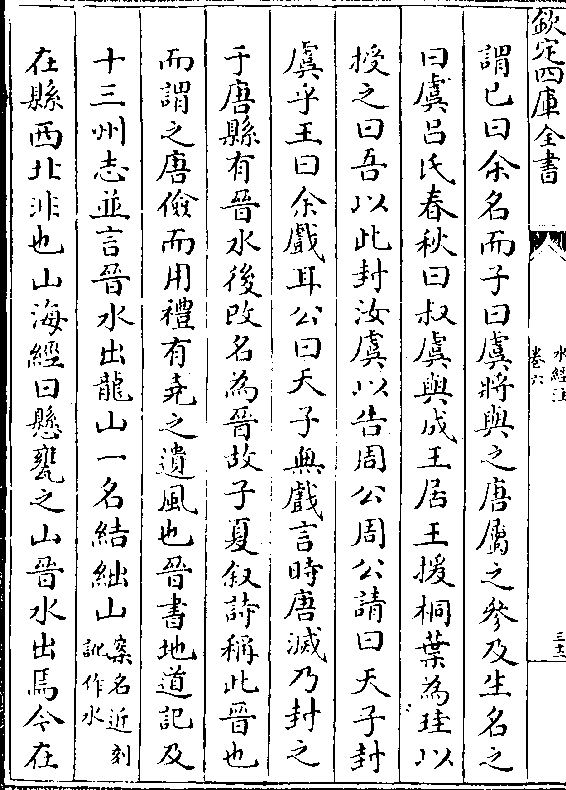 欽定四庫全書
水經注
卷六
三十二
謂已曰余名而子曰虞將與之唐屬之參及生名之
曰虞吕氏春秋曰叔虞與成王居王援桐葉為珪以
授之曰吾以此封汝虞以告周公周公請曰天子封
虞乎王曰余戲耳公曰天子無戲言時唐滅乃封之
于唐縣有晉水後改名為晉故子夏叙詩稱此晉也
而謂之唐儉而用禮有堯之遺風也晉書地道記及
十三州志並言晉水出龍山一名結絀山案名近刻訛作水
在縣西北非也山海經曰懸甕之山晉水出焉今在